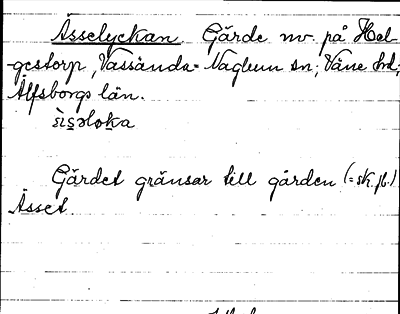 Åsselyckan Gärde nv. på Hel-
-gestorp, Vassända-Naglum sn; Väne hd;
Älfsborgs län.

Gärdet gränsar till gården (=sk.fb.)
Åsset.